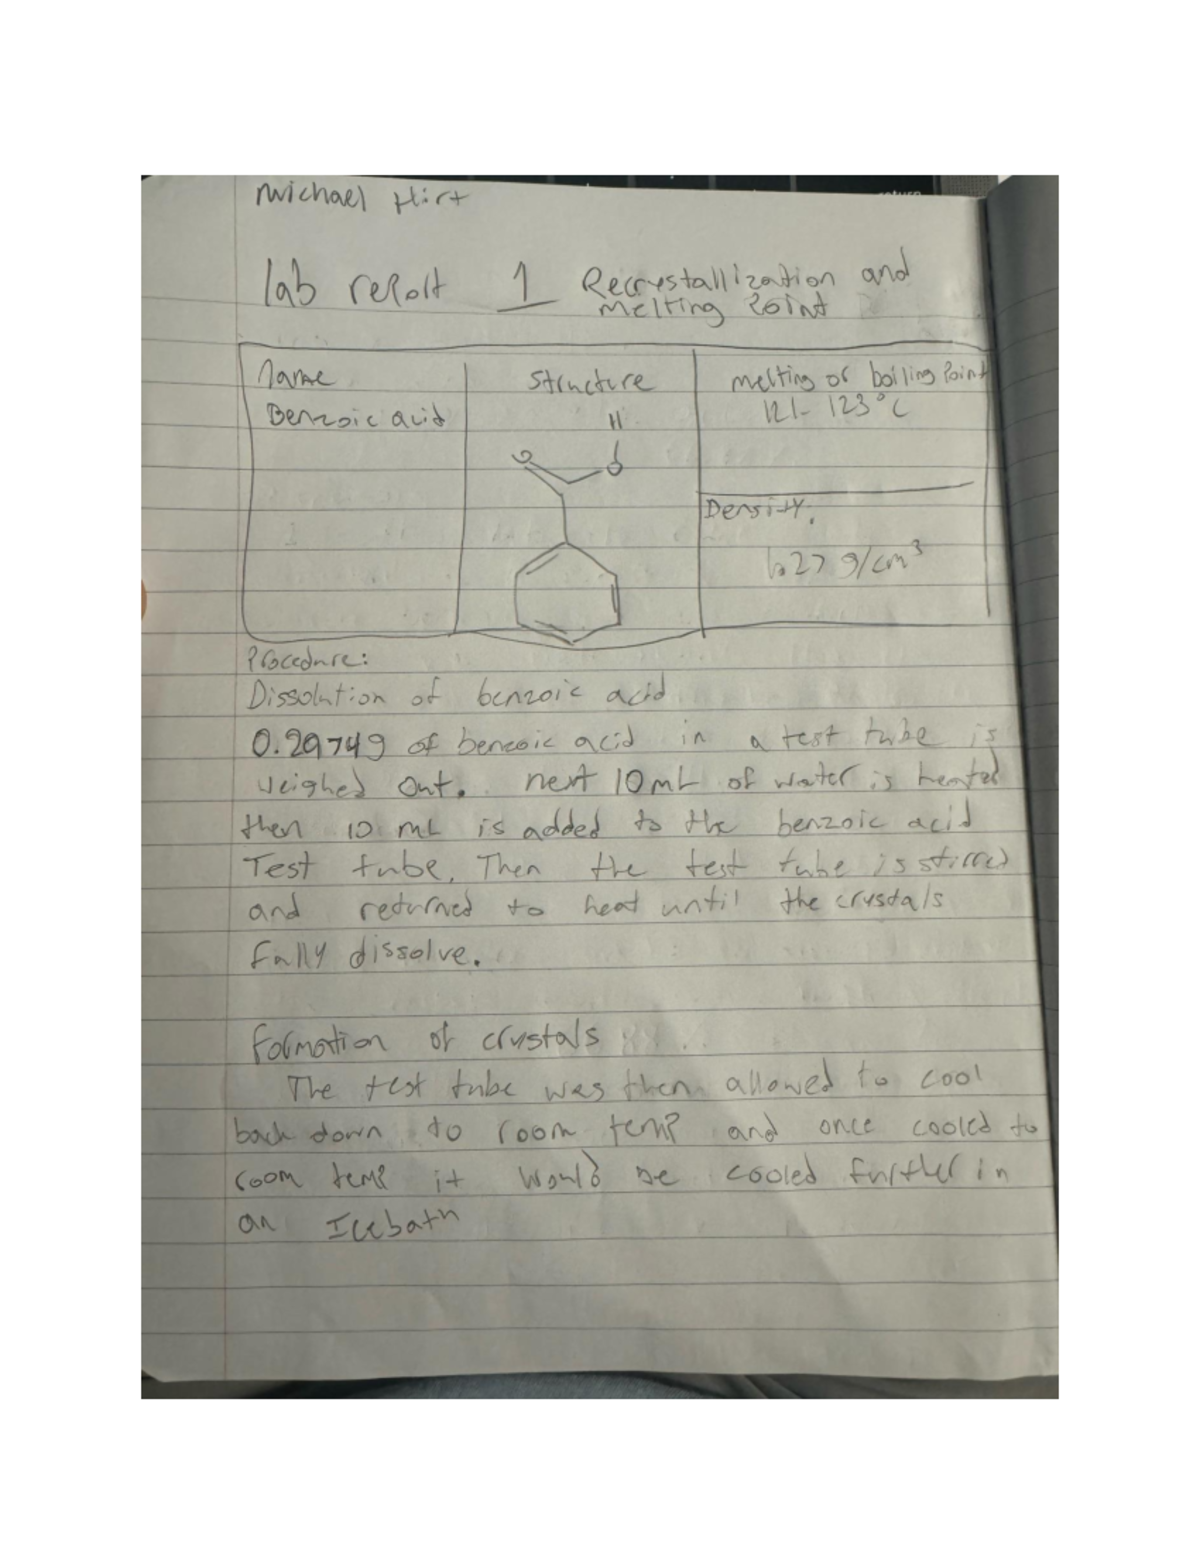 Michael Hirt
lab report 1 Recrystallization and
Melting Point
Name Structure melting or boiling Point
Benzoic acid 121-123°C
H
O O
Density:
1.27 g/cm³
Procedure:
Dissolution of benzoic acid
0.2974g of benzoic acid in a test tube is
weighed out. next 10mL of water is heated
then 10 mL is added to the benzoic acid
Test tube. Then the test tube is stirred
and returned to heat until the crystals
fully dissolve.
Formation of crystals
The test tube was then allowed to cool
back down to room temp and once cooled to
room temp it would be cooled further in
an Icebath